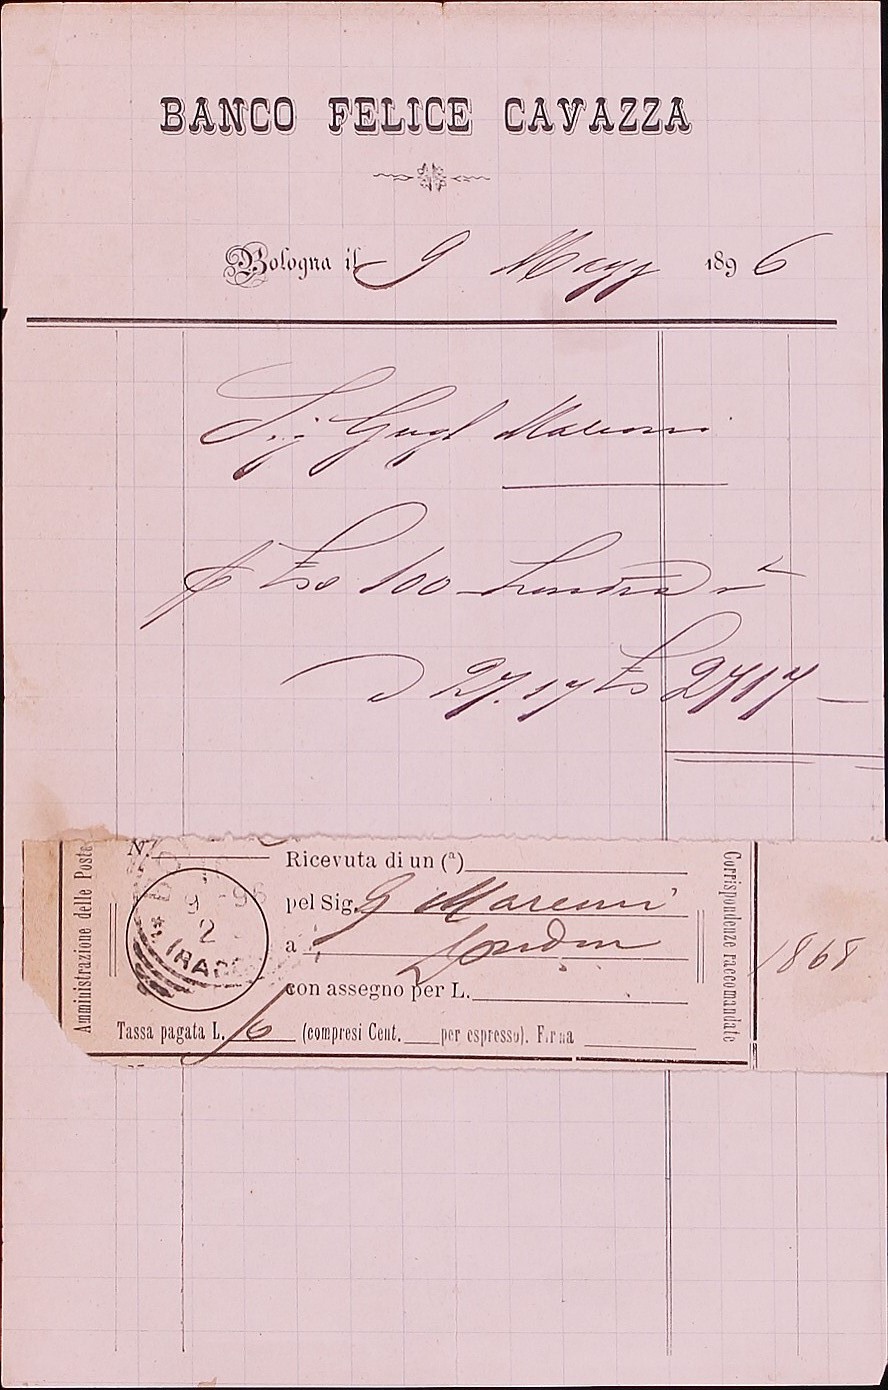 BANCO FELICE CAVAZZA
Bologna il 9 Magg 1896
Sig Gugl Marconi
100 Londra
27.17 2717
N.
Ricevuta di un (a)
pel Sig. G Marconi
a London
con assegno per L.
Tassa pagata L. (compresi Cent. per espresso). Firma
Amministrazione delle Poste
Corrispondenze raccomandate
1868
9 96
2